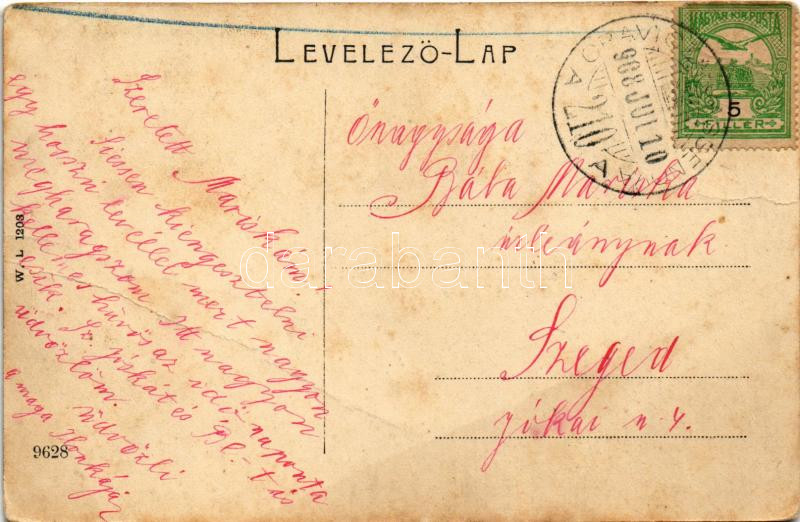 LEVELEZŐ-LAP
MAGYAR KIR. POSTA
5
FILLÉR
908 JUL 10
A
Szeretett Mariskám!
Siessen kiengesztelni
egy hosszú levéllel mert nagyon
megharagszom. Itt nagyon
kellemes hűvös az idő naponta
esik. Sz. Piskát és Bé-t is
üdvözlöm.
Üdvözli
a maga Ilonkája
Őnagysága
Bába Mariska
úrleánynak
Szeged
Jókai u 4.
W. L. 1203
9628
darabanth